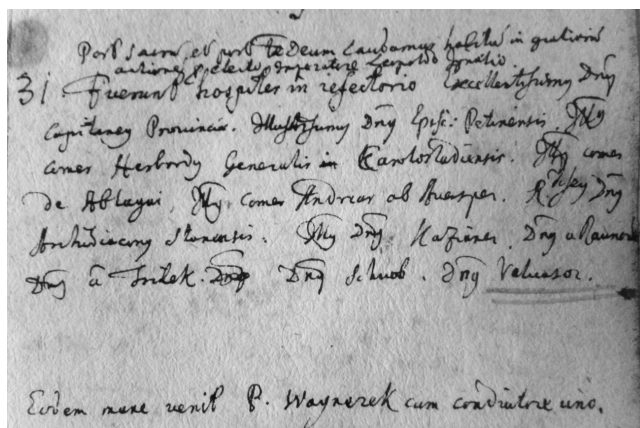 Post sacrum et post te Deum laudamus habitu in gratiarum
actionem electo Imperatore Leopoldo Ignatio
31 Fuerunt hospites in refectorio Excellentissimus Dnus
Capitaneus Provinciae. Illustrissimus Dnus Episc: Petinensis Illus
comes Herbardus Generalis in Karolostadiensis. Illus comes
de Ablagni, Illus comes Andreas ab Auersper. Dnus
Archidiaconus Illus Dnus Kazianer, Dnus a Raunach
Dnus a Dnus Schwob. Dnus Valvasor.
Eodem mane venit P. Waynerek cum condiutore uno.